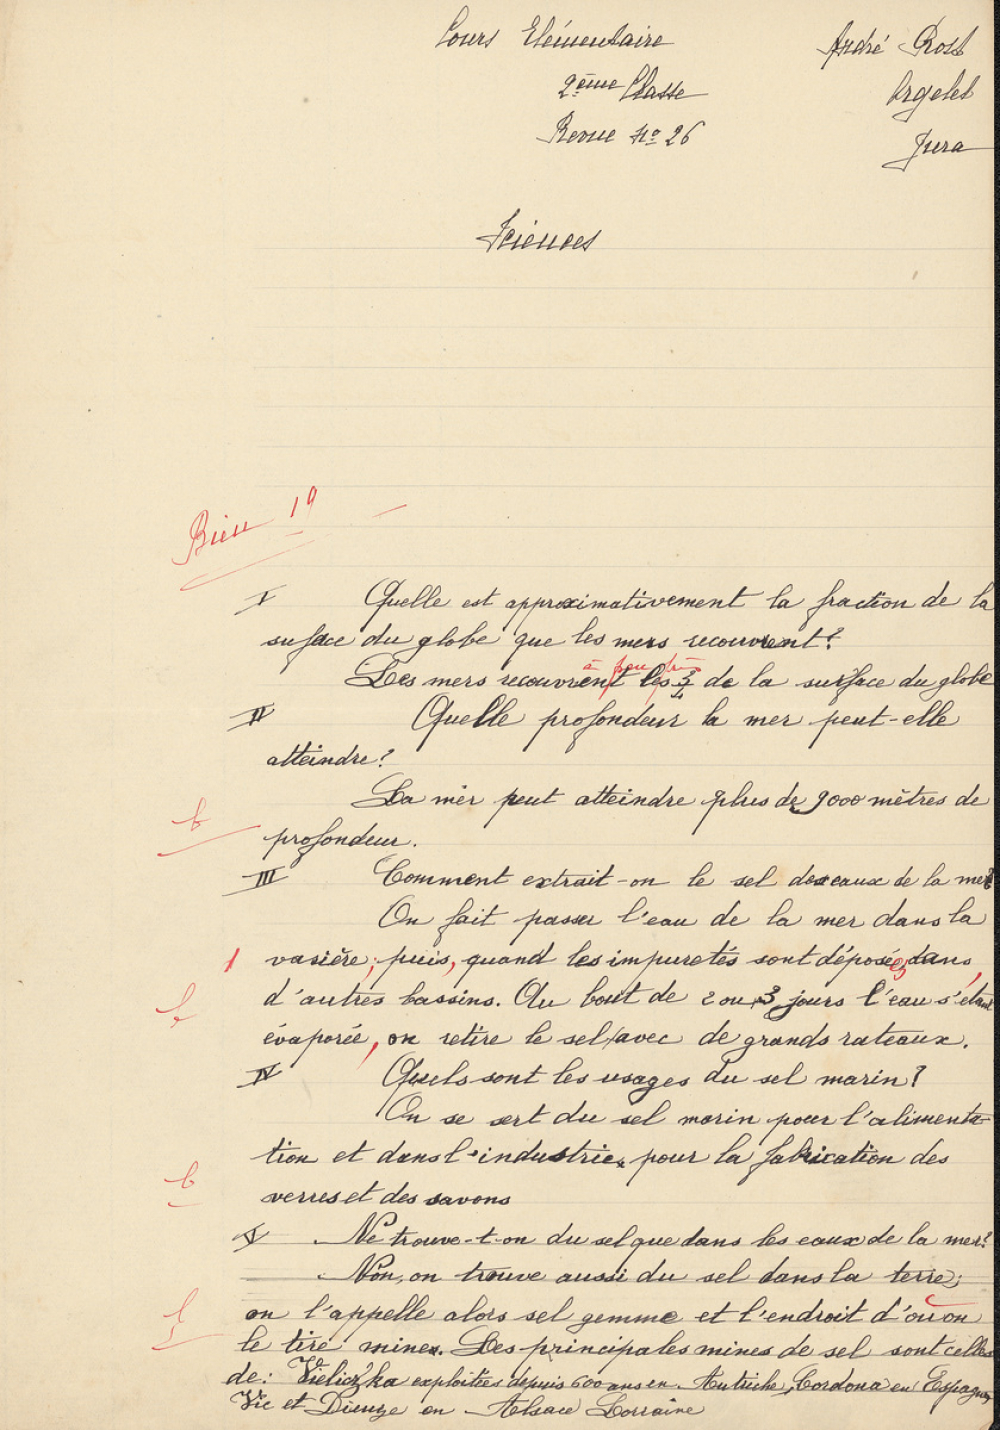 Cours Elémentaire
André Rost
2ème Classe
Orgelet
Revue No 26
Jura
Sciences
Bien 19
I Quelle est approximativement la fraction de la
surface du globe que les mers recouvrent?
à peu près
Les mers recouvrent les 3/4 de la surface du globe
II Quelle profondeur la mer peut-elle
atteindre?
La mer peut atteindre plus de 9000 mètres de
b
profondeur.
III Comment extrait-on le sel des eaux de la mer?
On fait passer l'eau de la mer dans la
vasière; puis, quand les impuretés sont déposées, dans
d'autres bassins. Au bout de 2 ou 3 jours l'eau s'étant
évaporée, on retire le sel avec de grands rateaux.
IV Quels sont les usages du sel marin?
On se sert du sel marin pour l'alimenta-
tion et dans l'industrie, pour la fabrication des
b
verres et des savons
V Ne trouve-t-on du sel que dans les eaux de la mer?
Non, on trouve aussi du sel dans la terre;
on l'appelle alors sel gemme et l'endroit d'où on
le tire mines. Les principales mines de sel sont celles
de: Vieliczka exploitées depuis 600 ans en Autriche, Cordona en Espagne,
Vic et Dieuze en Alsace Lorraine